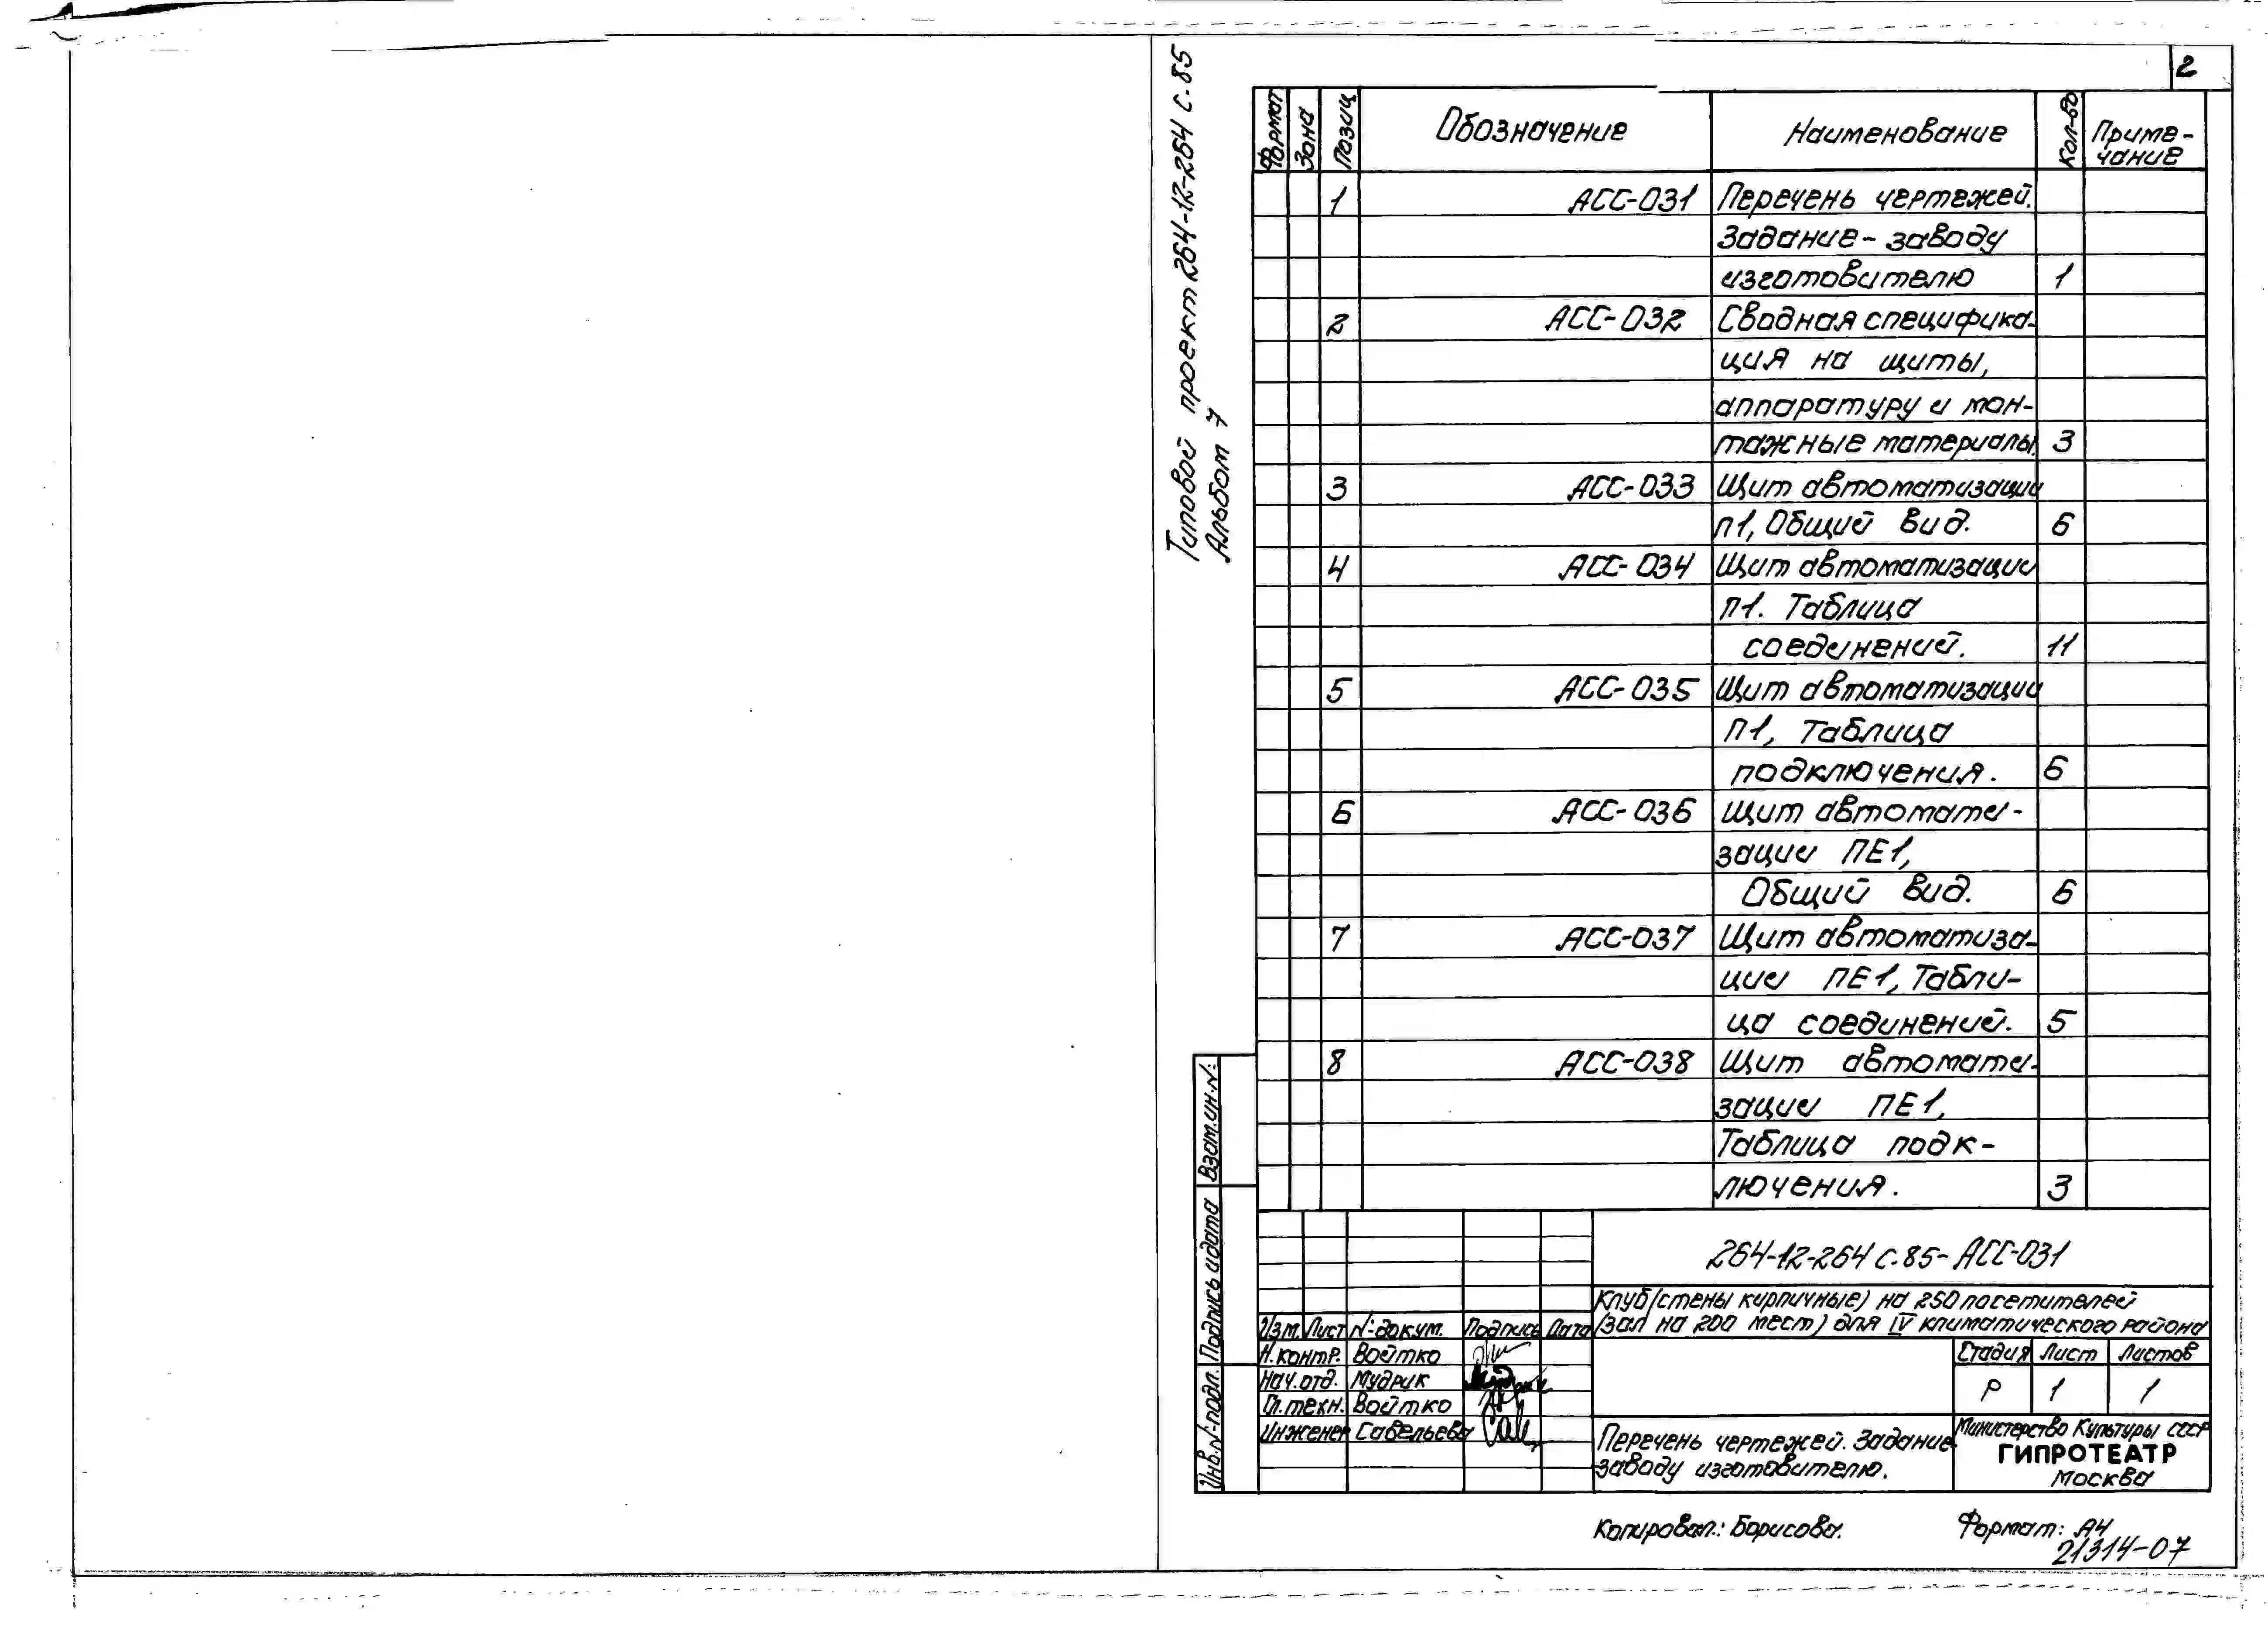 2
Типовой проект 264-12-264 с.85
Альбом 7
Формат Зона Позиц Обозначение Наименование Кол-во Приме-
чание
1 АСС-031 Перечень чертежей.
Задание-заводу
изготовителю 1
2 АСС-032 Сводная специфика-
ция на щиты,
аппаратуру и мон-
тажные материалы. 3
3 АСС-033 Щит автоматизации
П1, Общий вид. 6
4 АСС-034 Щит автоматизации
П1. Таблица
соединений. 11
5 АСС-035 Щит автоматизации
П1, Таблица
подключения. 6
6 АСС-036 Щит автомати-
зации ПЕ1,
Общий вид. 6
7 АСС-037 Щит автоматиза-
ции ПЕ1, Табли-
ца соединений. 5
8 АСС-038 Щит автомати-
зации ПЕ1,
Таблица подк-
лючения. 3
Взам.ин.№:
Подпись и дата
Инв.№:подл.
264-12-264 с.85-АСС-031
Клуб (стены кирпичные) на 250 посетителей
(зал на 200 мест) для IV климатического района
Изм. Лист №:докум. Подпись Дата
Н.контр. Войтко
Нач.отд. Мудрик
Гл.техн. Войтко
Инженер Савельева
Стадия Лист Листов
Р 1 1
Перечень чертежей. Задание
заводу изготовителю.
Министерство Культуры СССР
ГИПРОТЕАТР
Москва
Копировал.: Борисова. Формат: А4
21314-07